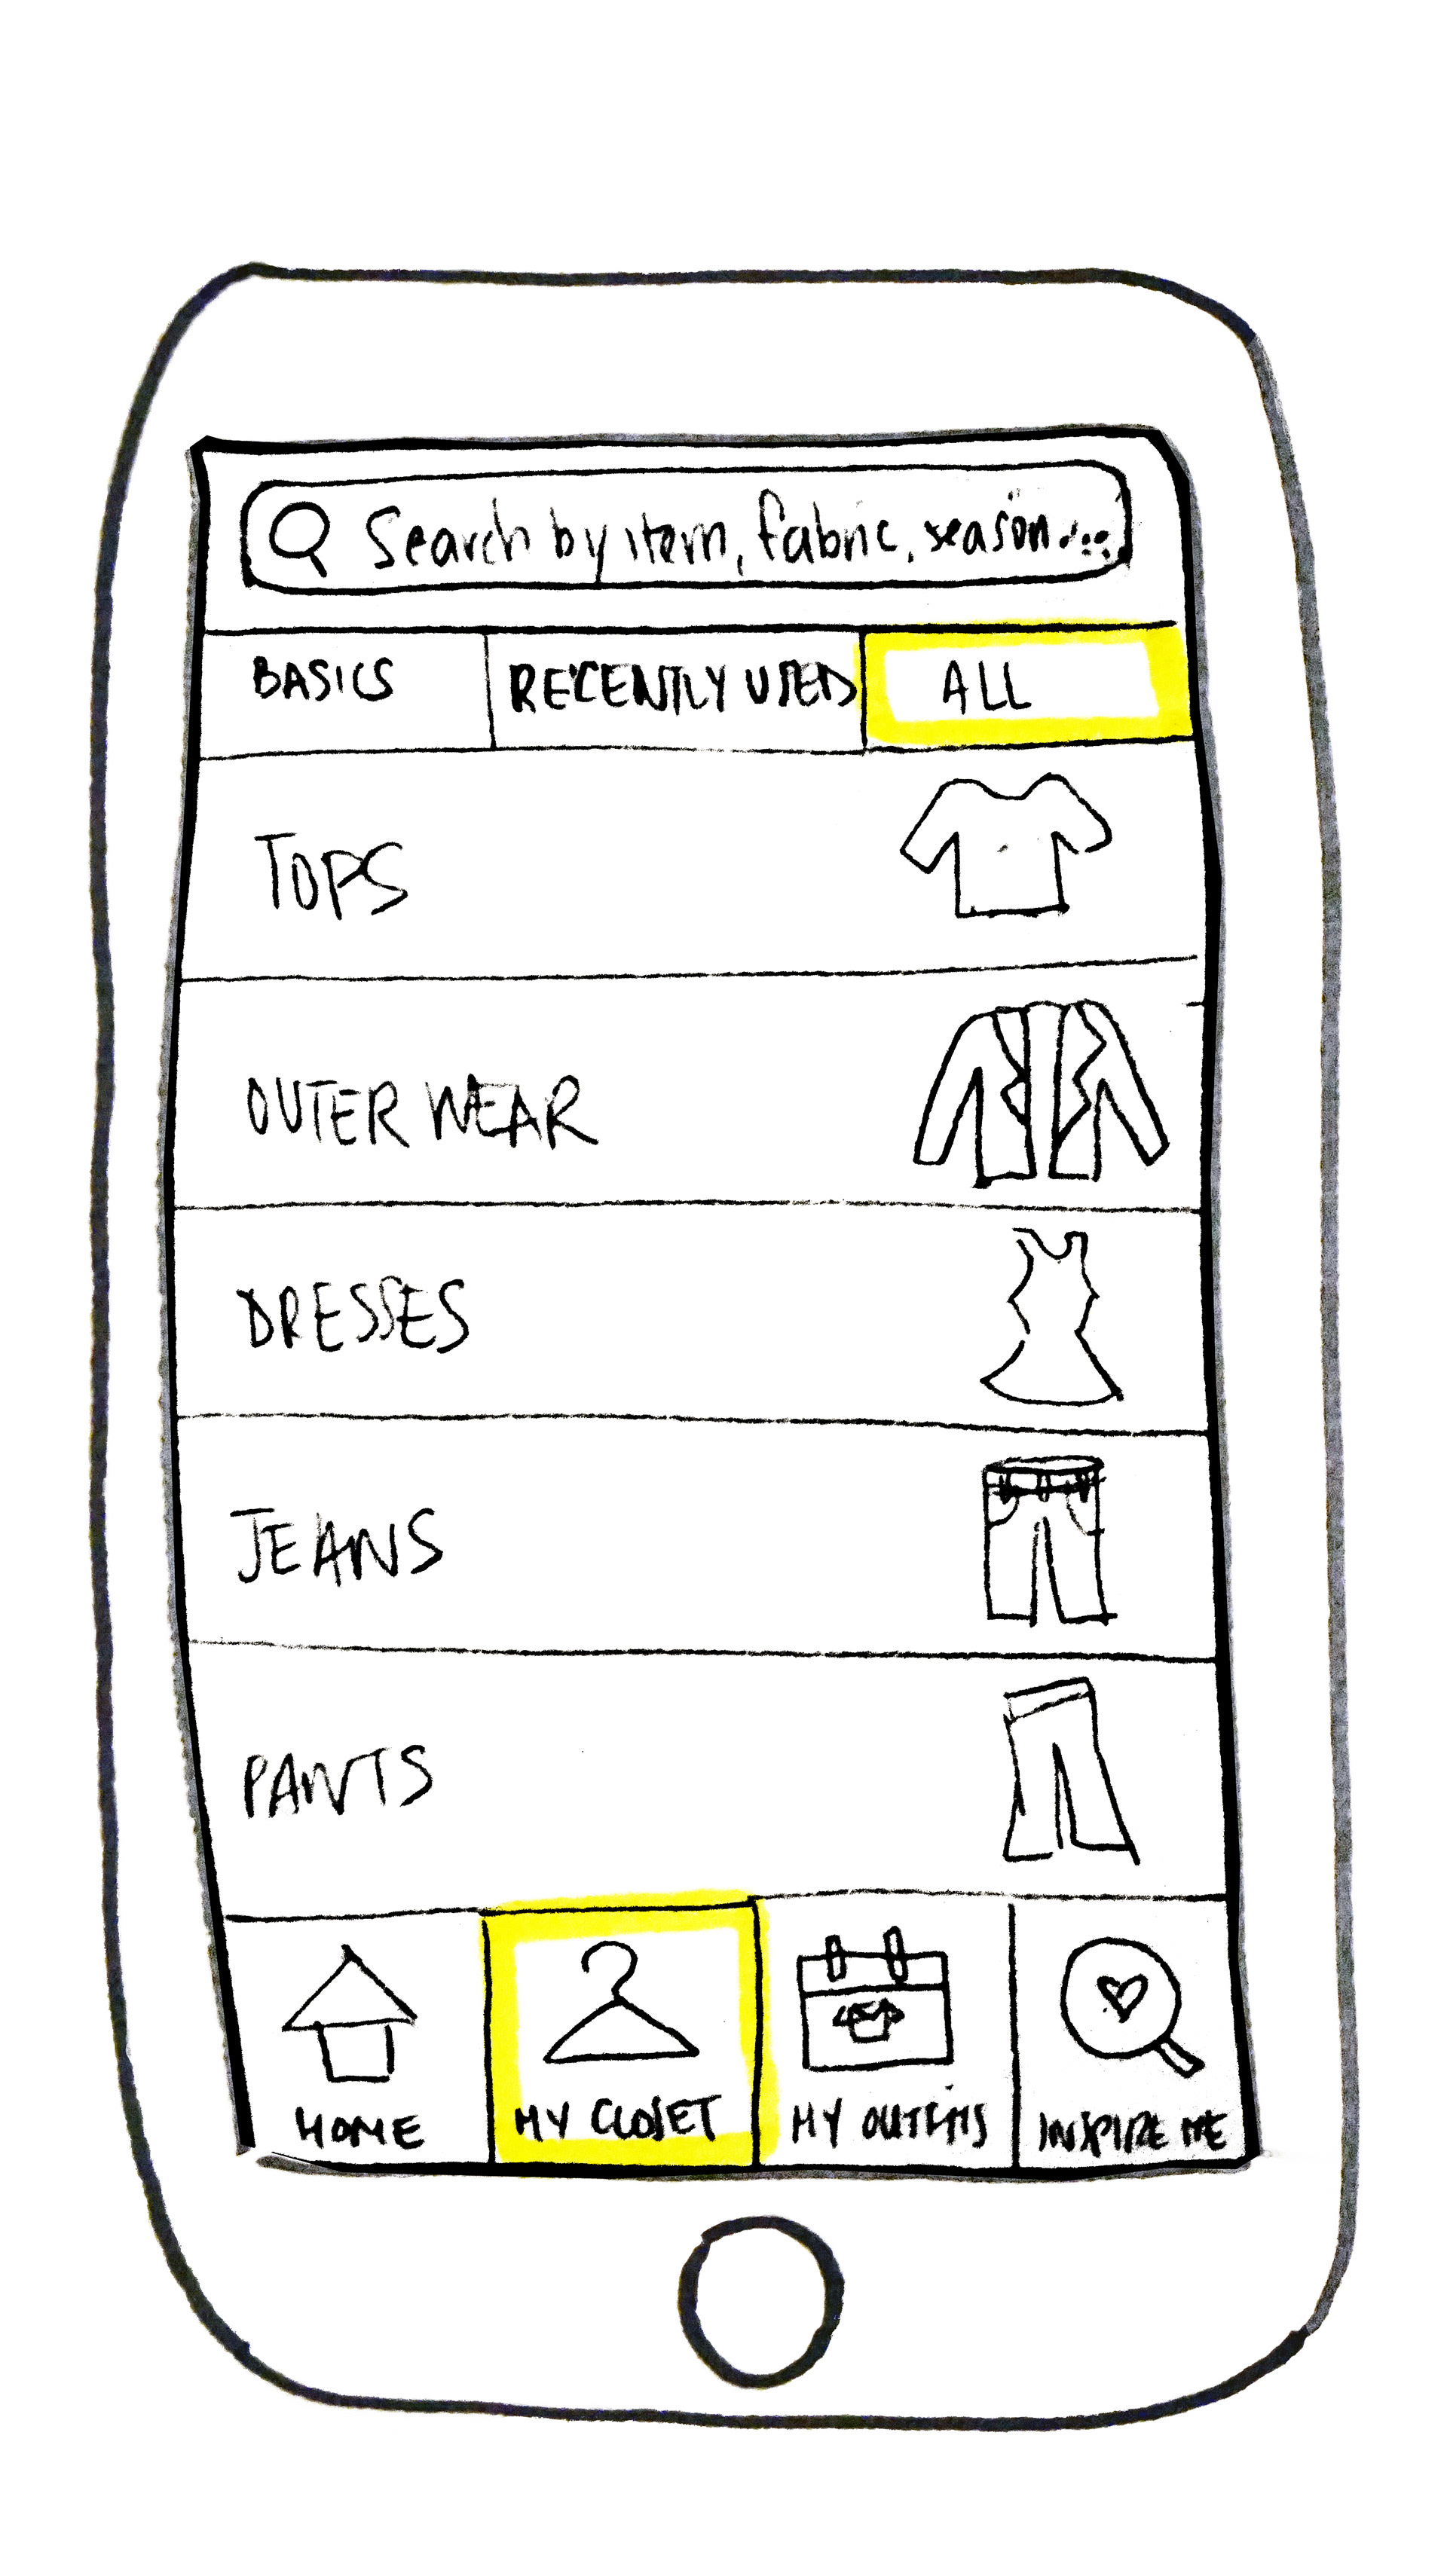 Search by item, fabric, season...
BASICS RECENTLY USED ALL
TOPS
OUTER WEAR
DRESSES
JEANS
PANTS
HOME MY CLOSET MY OUTFITS INSPIRE ME